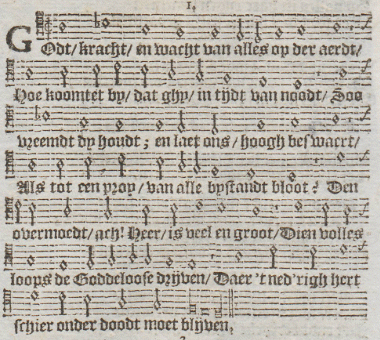 1.
GOdt/ kracht/ en wacht van alles op der aerdt/
Hoe koomtet by/ dat ghy/ in tydt van noodt/ Soo
vreemdt dy houdt; en laet ons/ hoogh beswaert/
Als tot een proy/ van alle bystandt bloot? Den
overmoedt/ ach! Heer/ is veel en groot/ Dien volles
loops de Goddeloose dryven/ Daer 't ned'righ hert
schier onder doodt moet blyven.